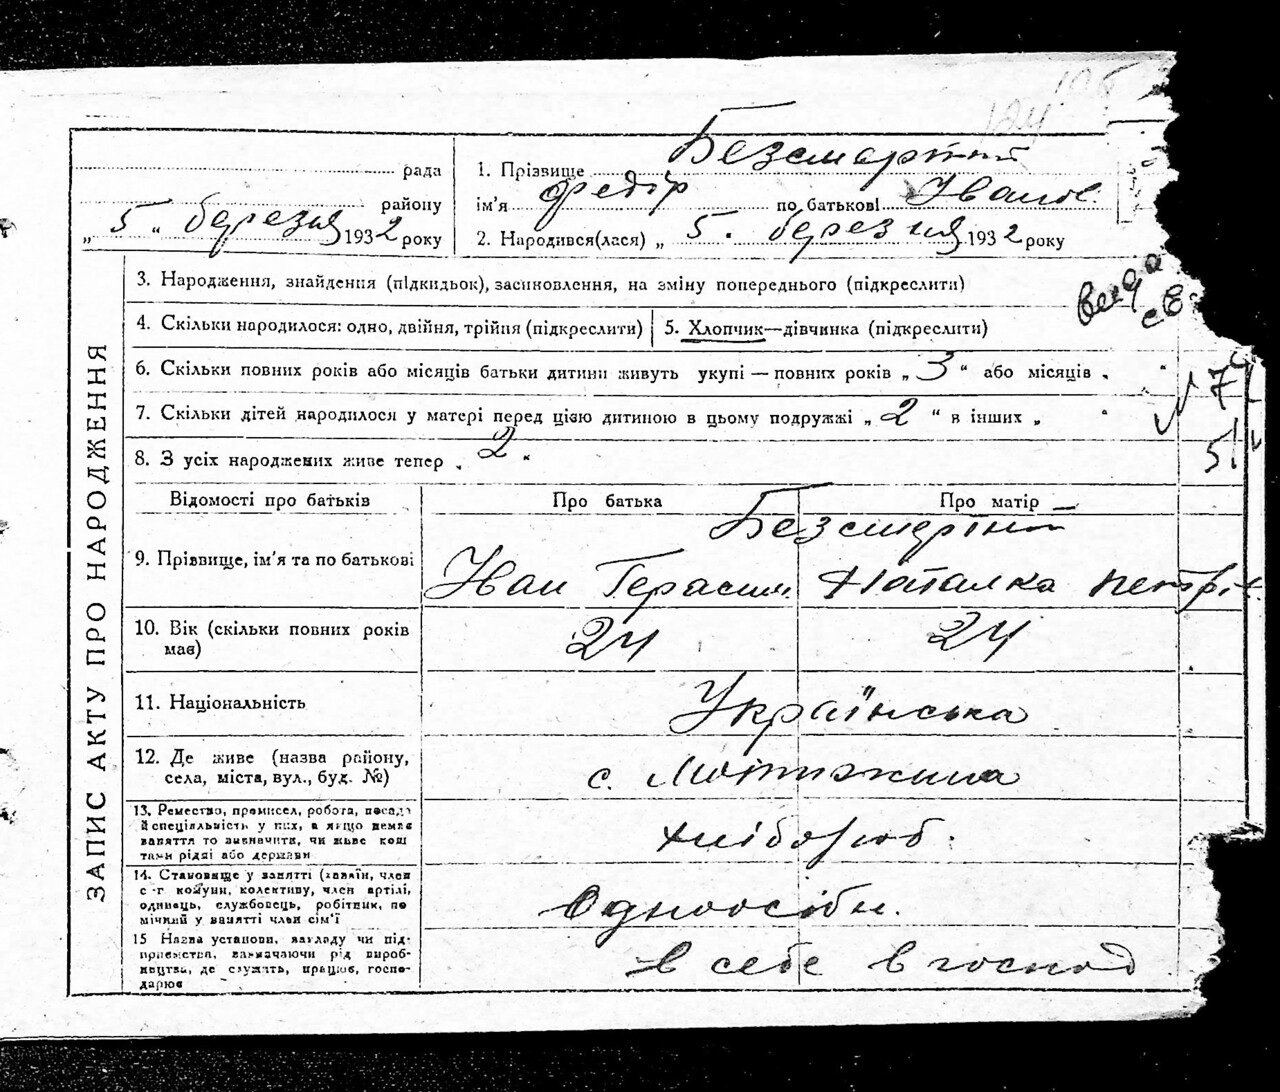 124
Безсмертний
рада
1. Прізвище
району
ім'я Федір по батькові Іванов.
„ 5 " березня 1932 року
2. Народився(лася) „ 5. березня 1932 року
3. Народження, знайдення (підкидьок), засиновлення, на зміну попереднього (підкреслити)
4. Скільки народилося: одно, двійня, трійня (підкреслити)
5. Хлопчик—дівчинка (підкреслити)
6. Скільки повних років або місяців батьки дитини живуть укупі — повних років „ 3 " або місяців „ "
7. Скільки дітей народилося у матері перед цією дитиною в цьому подружжі „ 2 " в інших „ "
8. З усіх народжених живе тепер „ 2 "
ЗАПИС АКТУ ПРО НАРОДЖЕННЯ
Відомості про батьків
Про батька
Про матір
Безсмертні
9. Прізвище, ім'я та по батькові
Іван Герасим.
Наталка Петрів.
10. Вік (скільки повних років має)
24
24
11. Національність
Українська
12. Де живе (назва району,
села, міста, вул., буд. №)
с. Мотижина
13. Ремество, промисел, робота, посада
й спеціяльність у них, а якщо немає
заняття то визначити, чи живе кош
тами рідні або держави
хлібороб.
14. Становище у занятті (хазяїн, член
с-г комуни, колективу, член артілі,
одинець, службовець, робітник, по
мічний у занятті член сім'ї
Одноосібн.
15 Назва установи, закладу чи під-
приємства, зазначаючи рід вироб-
ництва, де служить, працює, госпо-
дарює
в себе в господ